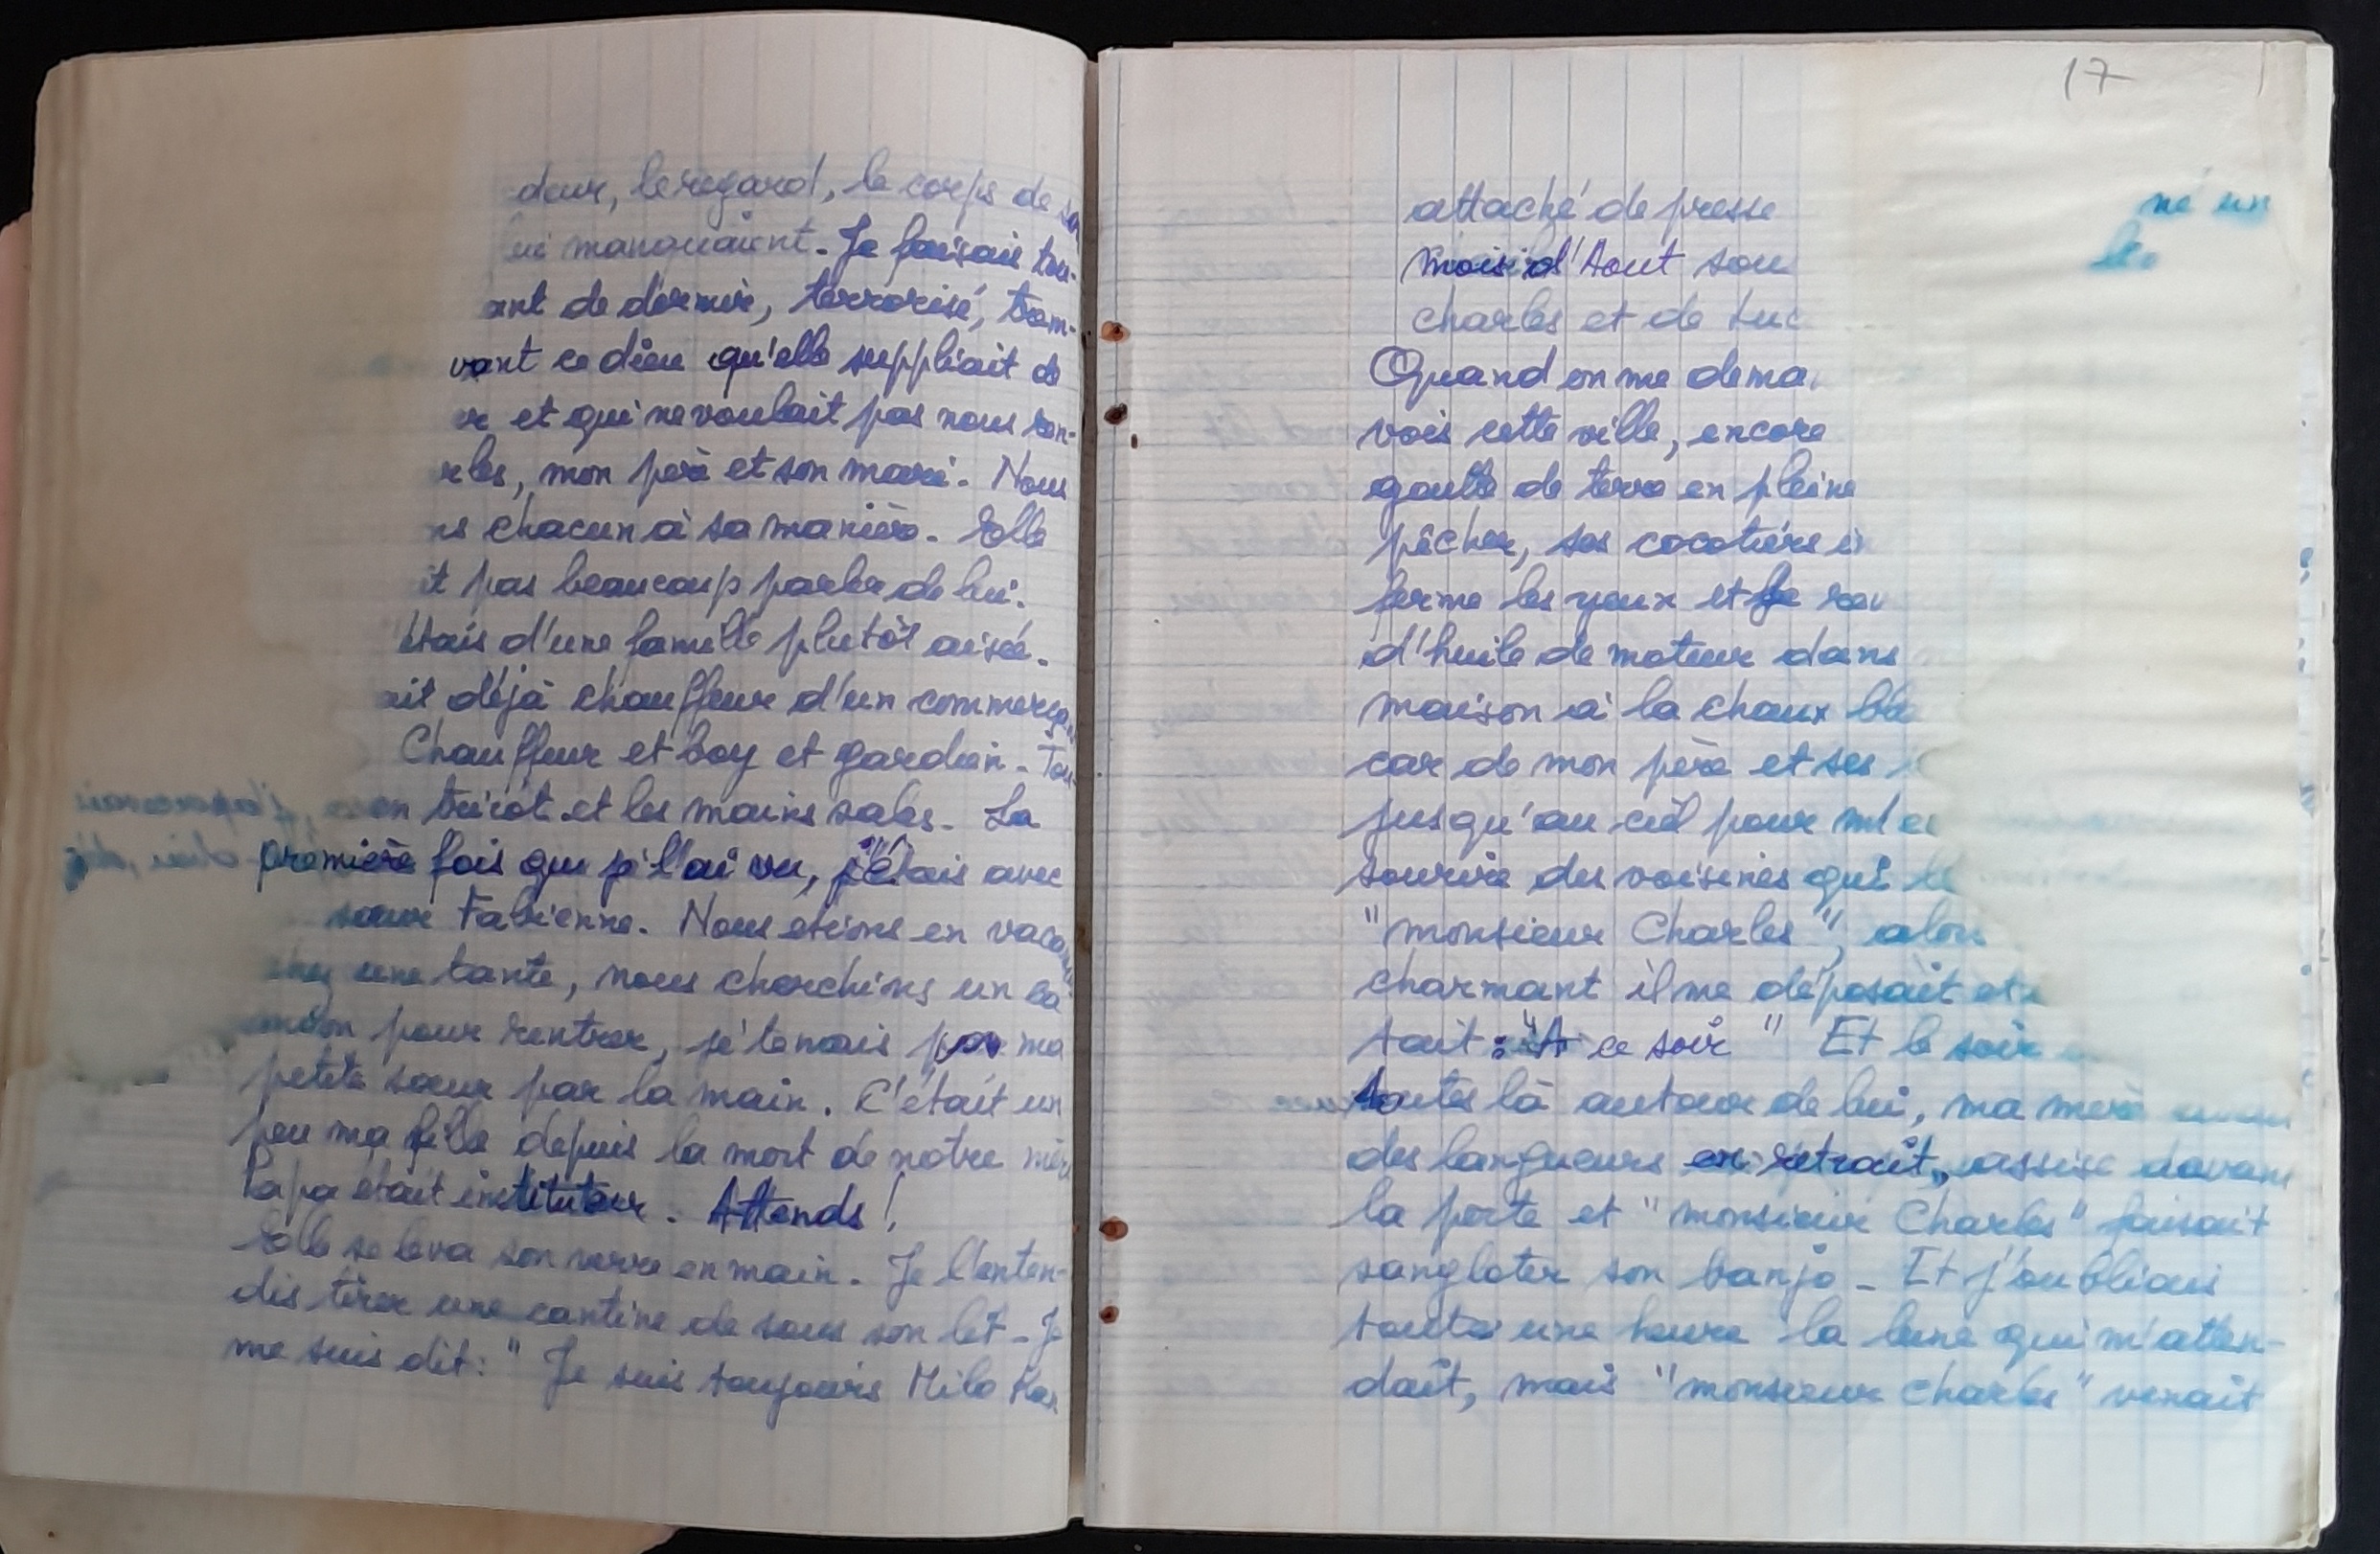 deur, le regard, le corps de son
manquaient. Je faisais
ant de dormir, terrorisé, trem-
vant ce dieu qu'elle suppliait de
et qui ne voulait pas nous ren-
rles, mon père et son mari. Nous
ns chacun à sa manière. Elle
it pas beaucoup parler de lui.
étais d'une famille plutôt aisée.
ait déjà chauffeur d'un commerçant
Chauffeur et boy et gardien. Tou
en tricot et les mains sales. La
première fois que je l'ai vu, j'étais avec
soeur Fabienne. Nous etions en vacances
chez une tante, nous cherchions un ca
mion pour rentrer, je tenais ma
petite soeur par la main. C'était un
peu ma fille depuis la mort de notre mère
Papa était instituteur. Attends !
Elle se leva son verre en main. Je l'enten-
dis tirer une cantine de sous son lit - Je
me suis dit : " Je suis toujours Milo
17
né un
attaché de presse
mois d'Aout sou
charles et de Luc
Quand on me dema
vois cette ville, encore
goutte de terre en pleine
pêcher, ses cocotiers
ferme les yeux et je
d'huile de moteur dans
maison à la chaux
car de mon père et ses
jusqu'au ciel pour
sourire des voisines qui
"monsieur Charles", alors
charmant il me déposait et
tait : "A ce soir " Et le soir
toutes là autour de lui, ma mère
des langueurs en retrait, assise devant
la porte et "monsieur Charles" faisait
sangloter son banjo - Et j'oubliais
toute une heure la lune qui m'atten-
dait, mais "monsieur Charles" venait